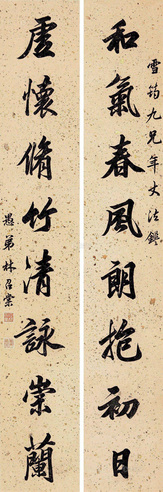 雪筠九兄年大法鑒
和氣春風朗抱初日
虛懷脩竹清詠崇蘭
愚弟林召棠